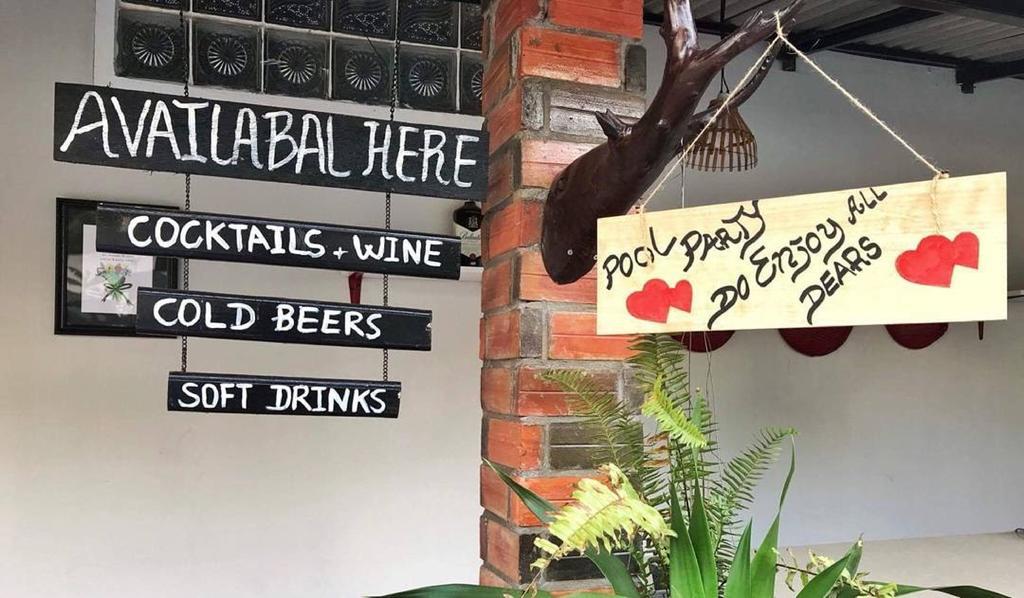 AVAILABAL HERE
COCKTAILS + WINE
COLD BEERS
SOFT DRINKS
POOL PARTY
DO ENJOY ALL
DEARS